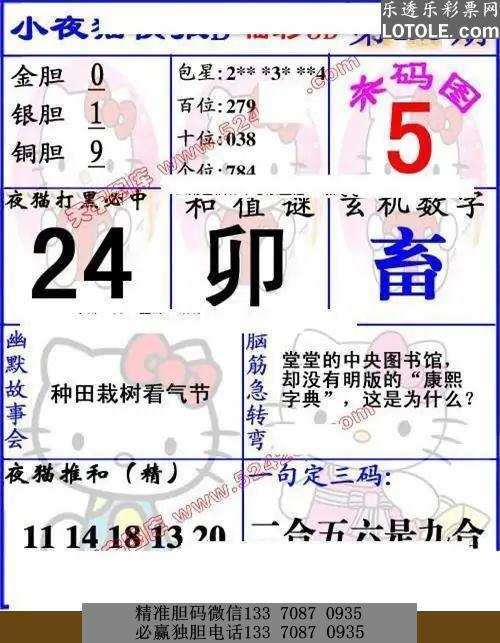 乐透乐彩票网
LOTOLE.com
小夜猫
第
期
金胆 0
银胆 1
铜胆 9
包星:2** *3* **4
百位:279
十位:038
个位:784
杀码图
5
夜猫打黑必中
24
和值谜
卯
玄机数字
畜
幽默故事会
种田栽树看气节
脑筋急转弯
堂堂的中央图书馆,
却没有明版的“康熙
字典”,这是为什么?
夜猫推和(精)
11 14 18 13 20
一句定三码:
二合五六是九合
精准胆码微信133 7087 0935
必赢独胆电话133 7087 0935